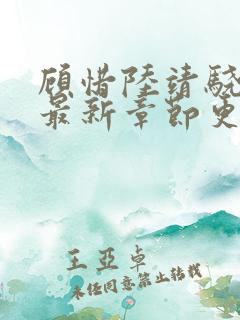 顾惜陆靖骁
最新章节史
王亚卓
未经同意禁止转载